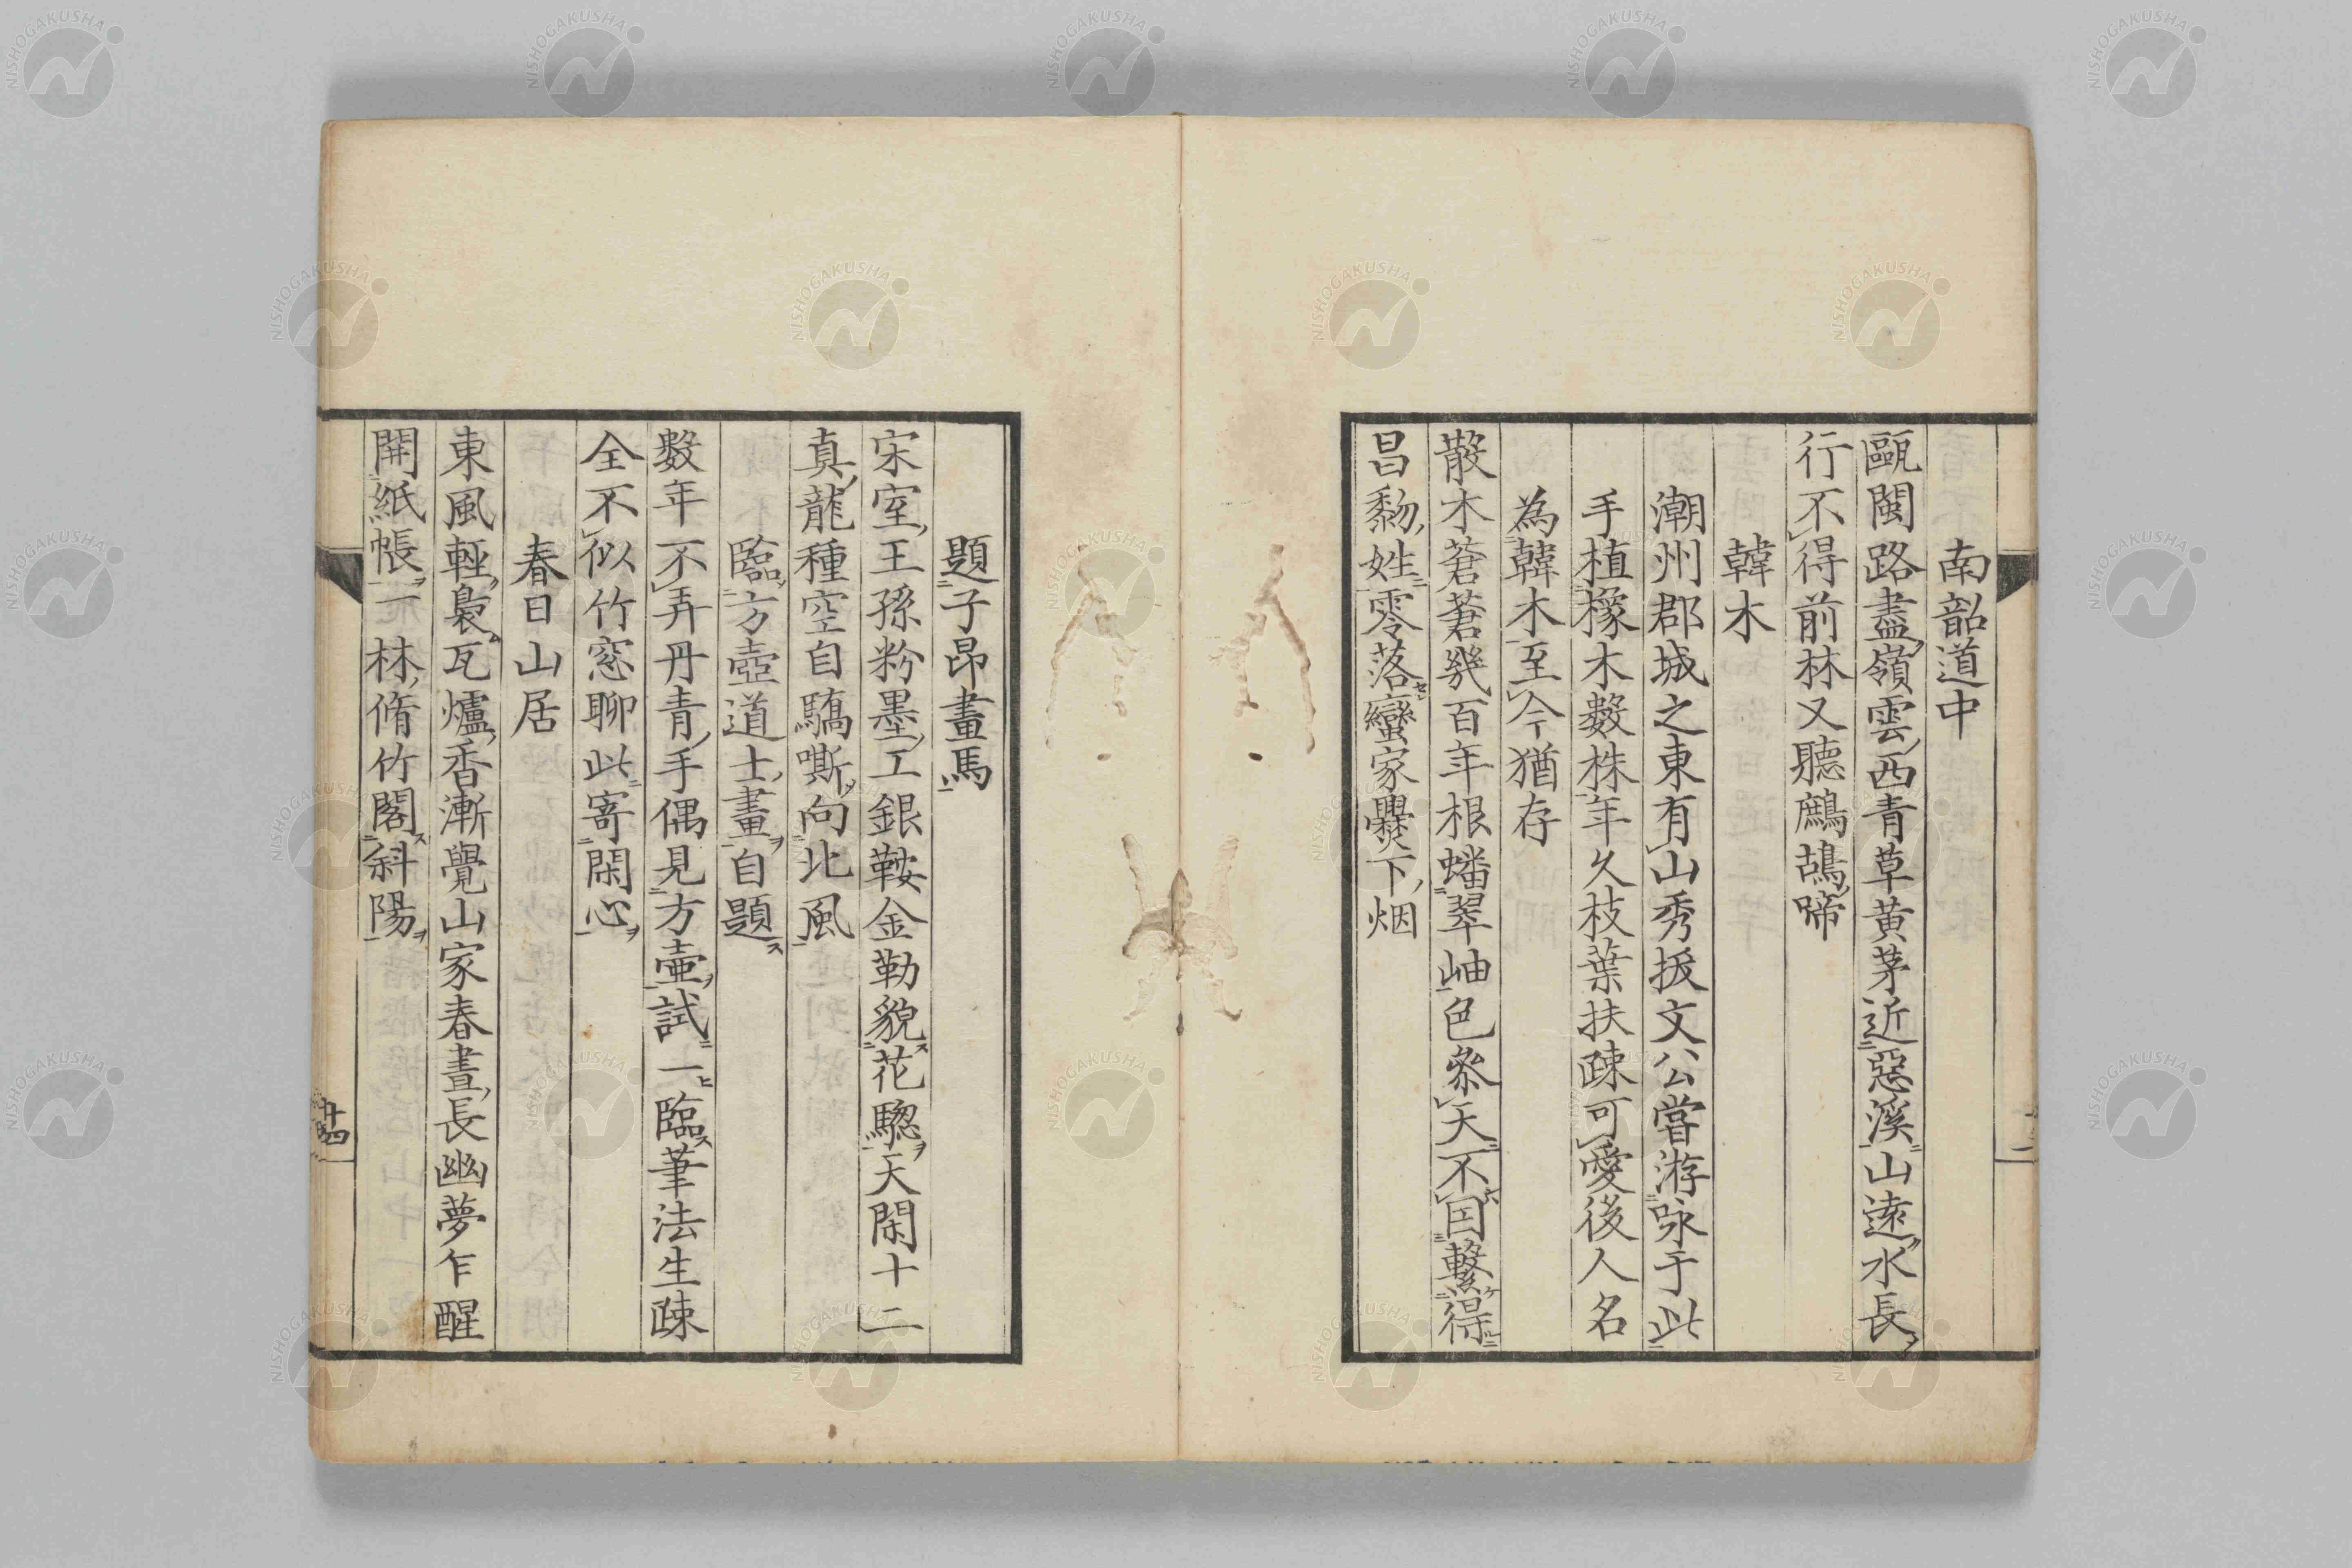 南韶道中
甌閩路盡嶺雲西青草黄茅近惡溪山遠水長
行不得前林又聽鷓鴣啼
韓木
潮州郡城之東有山秀拔文公嘗游咏于此
手植橡木數株年久枝葉扶疎可愛後人名
為韓木至今猶存
散木蒼蒼幾百年根蟠翠岫色參天不因繫得
昌黎姓零落蠻家爨下烟
題子昂畫馬
宋室王孫粉墨工銀鞍金勒貌花驄天閑十二
真龍種空自驕嘶向北風
臨方壺道士畫自題
數年不弄丹青手偶見方壷試一臨筆法生疎
全不似竹窓聊此寄閑心
春日山居
東風輕裊瓦爐香漸覺山家春晝長幽夢乍醒
開紙帳一林脩竹閣斜陽
十四
NISHOGAKUSHA